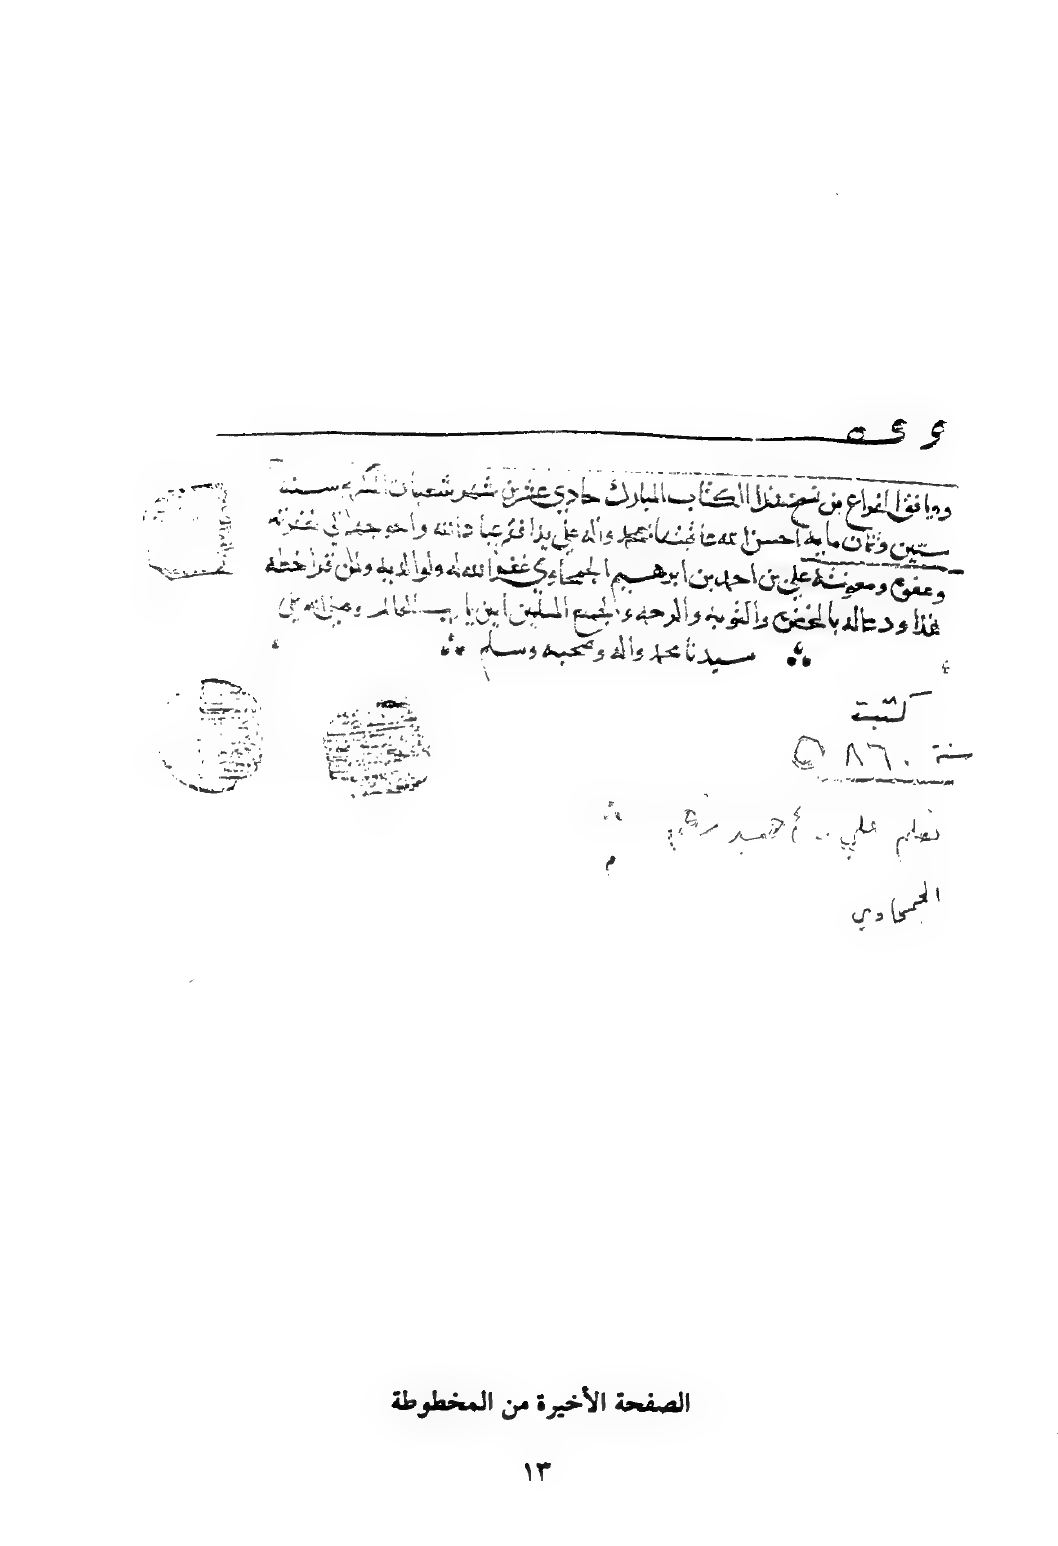 ووافق الفراغ من نسخ هذا الكتاب المبارك حادي عشر من شهر شعبان المكرم سنة
ستين وثمان مايه احسن الله عاقبتها بمحمد واله على يد افقر عباد الله واحوجهم الى مغفرته
وعفوه ومعونته علي بن احمد بن ابرهيم الجمحاوي غفر الله له ولوالديه ولمن قرا خطه
هذا ودعا له بالمغفره والتوبه والرحمه ولجميع المسلمين امين يا رب العالمين وصلى الله على
سيدنا محمد واله وصحبه وسلم
كتبت
سنة ٨٦٠ ه
بقلم علي أحمد
الجمحاوي
الصفحة الأخيرة من المخطوطة
١٣